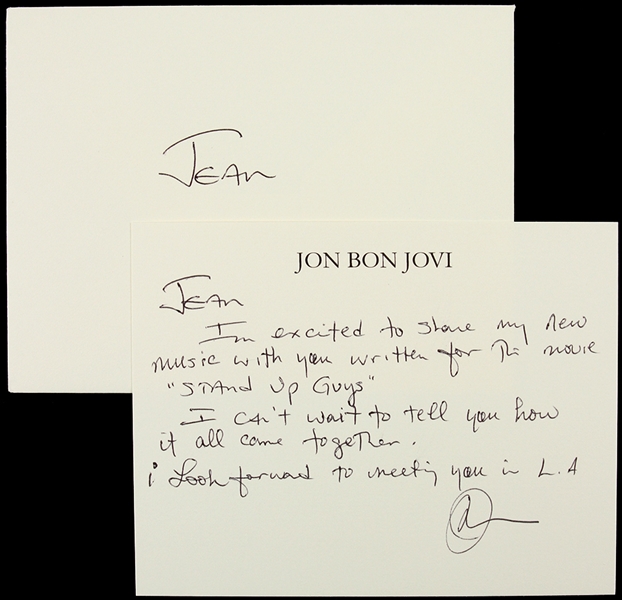 JEAN
JON BON JOVI
JEAN
I'm excited to share my new
music with you written for The movie
"STAnd Up Guys"
I can't wait to tell you how
it all came together.
i Look forward to meeting you in L.A